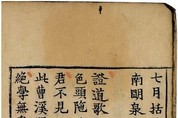 七月括
南明泉
證道歌
色頭陁
君不見
此曹溪
絶學無